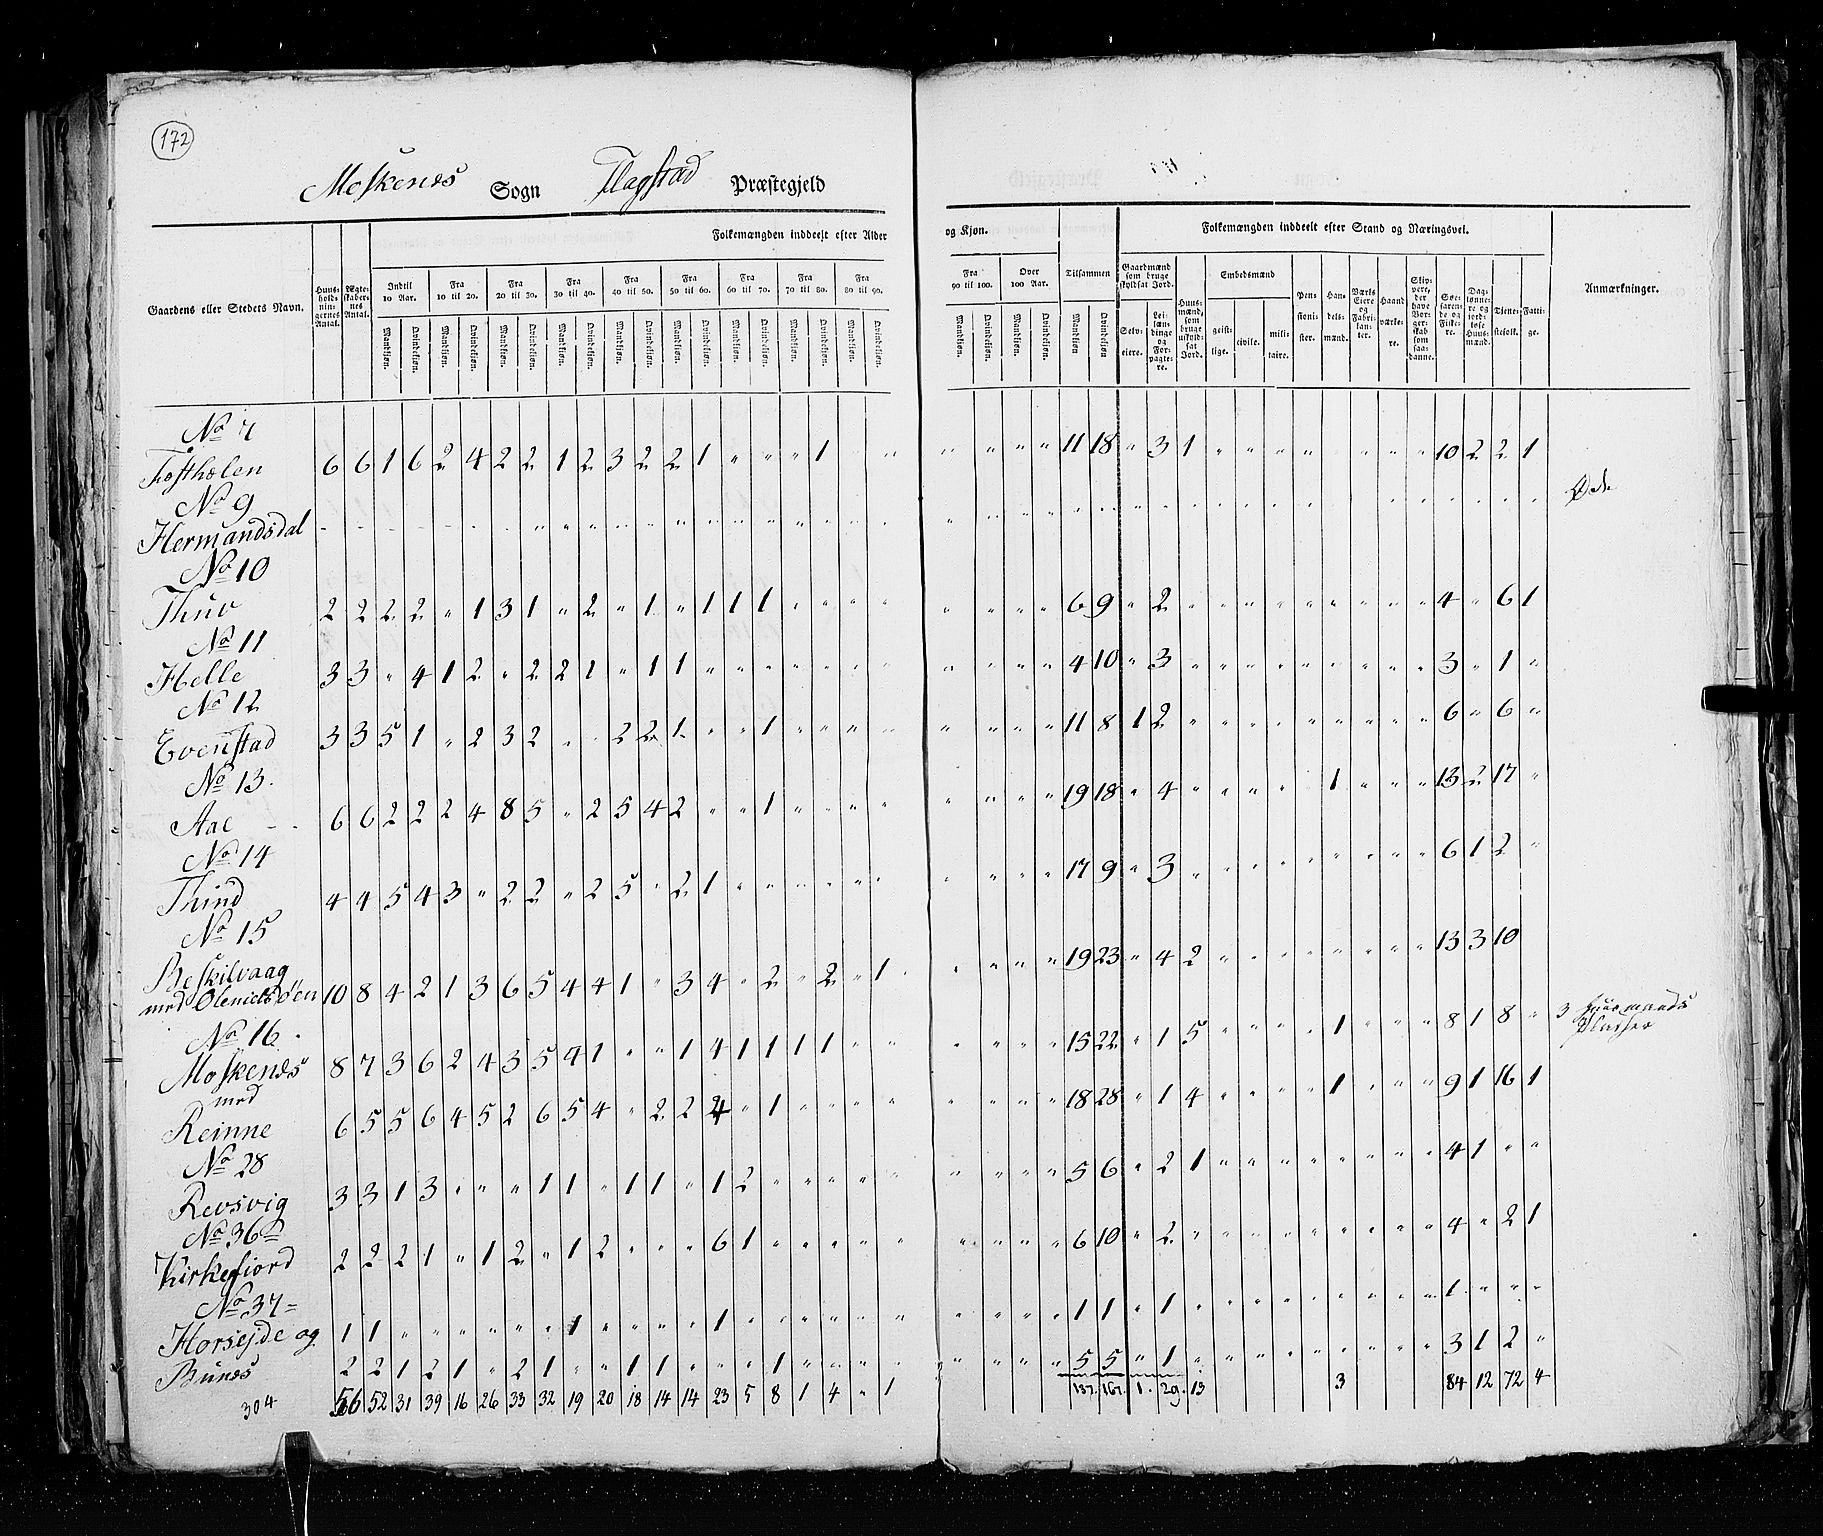 172
Moskenes Sogn Flagstad Præstegjeld
Folkemængden inddeelt efter Alder og Kjøn. Folkemængden inddeelt efter Stand og Næringsvei.
Gaardens eller Stedets Navn. Huus-holdningernes Antal. Ægteskabernes Antal. Indtil 10 Aar. Fra 10 til 20. Fra 20 til 30. Fra 30 til 40. Fra 40 til 50. Fra 50 til 60. Fra 60 til 70. Fra 70 til 80. Fra 80 til 90. Fra 90 til 100. Over 100 Aar. Tilsammen Gaardmænd som bruge skyldsat Jord. Huusmænd, som bruge uskyldsat Jord. Embedsmænd Pensionister. Handelsmænd. Værks Eiere og Fabrikanter. Haandværkere. Skippere, der have Borgerskab som saadanne. Søefarende og Fiskere. Daglønnere og jordløse Huusmænd. Tjenestefolk. Fattige. Anmærkninger.
Mandkjøn. Qvindekjøn. Mandkjøn. Qvindekjøn. Mandkjøn. Qvindekjøn. Mandkjøn. Qvindekjøn. Mandkjøn. Qvindekjøn. Mandkjøn. Qvindekjøn. Mandkjøn. Qvindekjøn. Mandkjøn. Qvindekjøn. Mandkjøn. Qvindekjøn. Mandkjøn. Qvindekjøn. Mandkjøn. Qvindekjøn. Mandkjøn Qvindekjøn Selveiere. Leilændinge og Forpagtere. geistlige. civile. militaire.
No 7
6 6 1 6 2 4 2 2 1 2 3 2 2 1 " " " 1 " " " " " " 11 18 " 3 1 " " " " " " " " 10 2 2 1
No 9
Hermandsdal Øde
No 10
Thuv 2 2 2 2 " 1 3 1 " 2 " 1 " 1 1 1 " " " " " " " " 6 9 " 2 " " " " " " " " " 4 " 6 1
No 11
Helle 3 3 " 4 1 2 " 2 2 1 " 1 1 " " " " " " " " " " " 4 10 " 3 " " " " " " " " " 3 " 1 "
No 12
Evenstad 3 3 5 1 " 2 3 2 " " 2 2 1 " " 1 " " " " " " " " 11 8 1 2 " " " " " " " " " 6 " 6 "
No 13.
Aae 6 6 2 2 2 4 8 5 " 2 5 4 2 " " 1 " " " " " " " " 19 18 " 4 " " " " 1 " " " 13 2 17 "
No 14
Thind 4 4 5 4 3 " 2 2 " 2 5 " 2 1 " " " " " " " " " " 17 9 " 3 " " " " " " " " " 6 1 2 "
No 15
Beskilvaag
med Olenielsøen 10 8 4 2 1 3 6 5 4 4 1 " 3 4 " 2 " 2 " 1 " " " " 19 23 " 4 2 " " " " " " " " 13 3 10
No 16.
Moskenes 8 7 3 6 2 4 3 5 4 1 " " 1 4 1 1 1 1 " " " " " " 15 22 " 1 5 " " " " 1 " " " 8 1 8 " 3 Huusmands Pladser
med
Reinne 6 5 5 6 4 5 2 6 5 4 " 2 2 4 " 1 " " " " " " " " 18 28 " 1 4 " " " " 1 " " " 9 1 16 1
No 28
Revsvig 3 3 1 3 " " " 1 1 " 1 1 " 1 2 " " " " " " " " " 5 6 " 2 1 " " " " " " " " 4 1 " "
No 36
Kirkefiord 2 2 2 1 " 1 2 " 1 2 " " " 6 1 " " " " " " " " " 6 10 " 2 " " " " " " " " " 4 " 2 1
No 37
Horsejde og 1 1 " " " " " " 1 " " " " 1 " " " " " " " " " " 1 1 " 1 " " " " " " " " " 1 " " "
Bunes 2 2 1 2 1 " 2 1 " " 1 1 " " " 1 " " " " " " " " 5 5 " 1 " " " " " " " " " 3 1 2 "
304 56 52 31 39 16 26 33 32 19 20 18 14 14 23 5 8 1 4 " 1 137. 167. 1. 29. 13 3 84 12 72 4